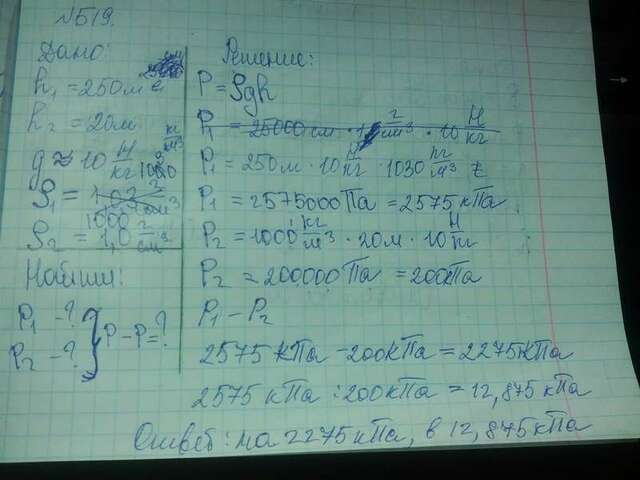 №519.
Дано:
h₁ = 250 м
h₂ = 20 м
g ≈ 10 Н/кг
ρ₁ = 1030 кг/м³
ρ₂ = 1000 1,0 г/см³
Найти:
P₁ - ?
P₂ - ? } P - P = ?
Решение:
P = ρgh
P₁ = 25000 см · 1 г/см³ · 10 Н/кг
P₁ = 250 м · 10 Н/кг · 1030 кг/м³ =
P₁ = 2575000 Па = 2575 кПа
P₂ = 1000 кг/м³ · 20 м · 10 Н/кг
P₂ = 200000 Па = 200 кПа
P₁ - P₂
2575 кПа - 200 кПа = 2275 кПа
2575 кПа : 200 кПа = 12,875 кПа
Ответ: на 2275 кПа, в 12,875 кПа